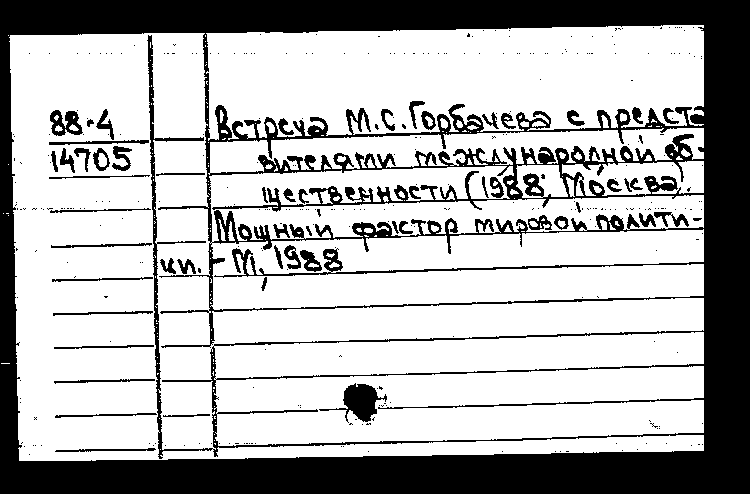 88-4 Встреча М.С. Горбачева с предста
14705 вителями международной об-
щественности (1988; Москва).
Мощный фактор мировой полити-
ки. - М., 1988